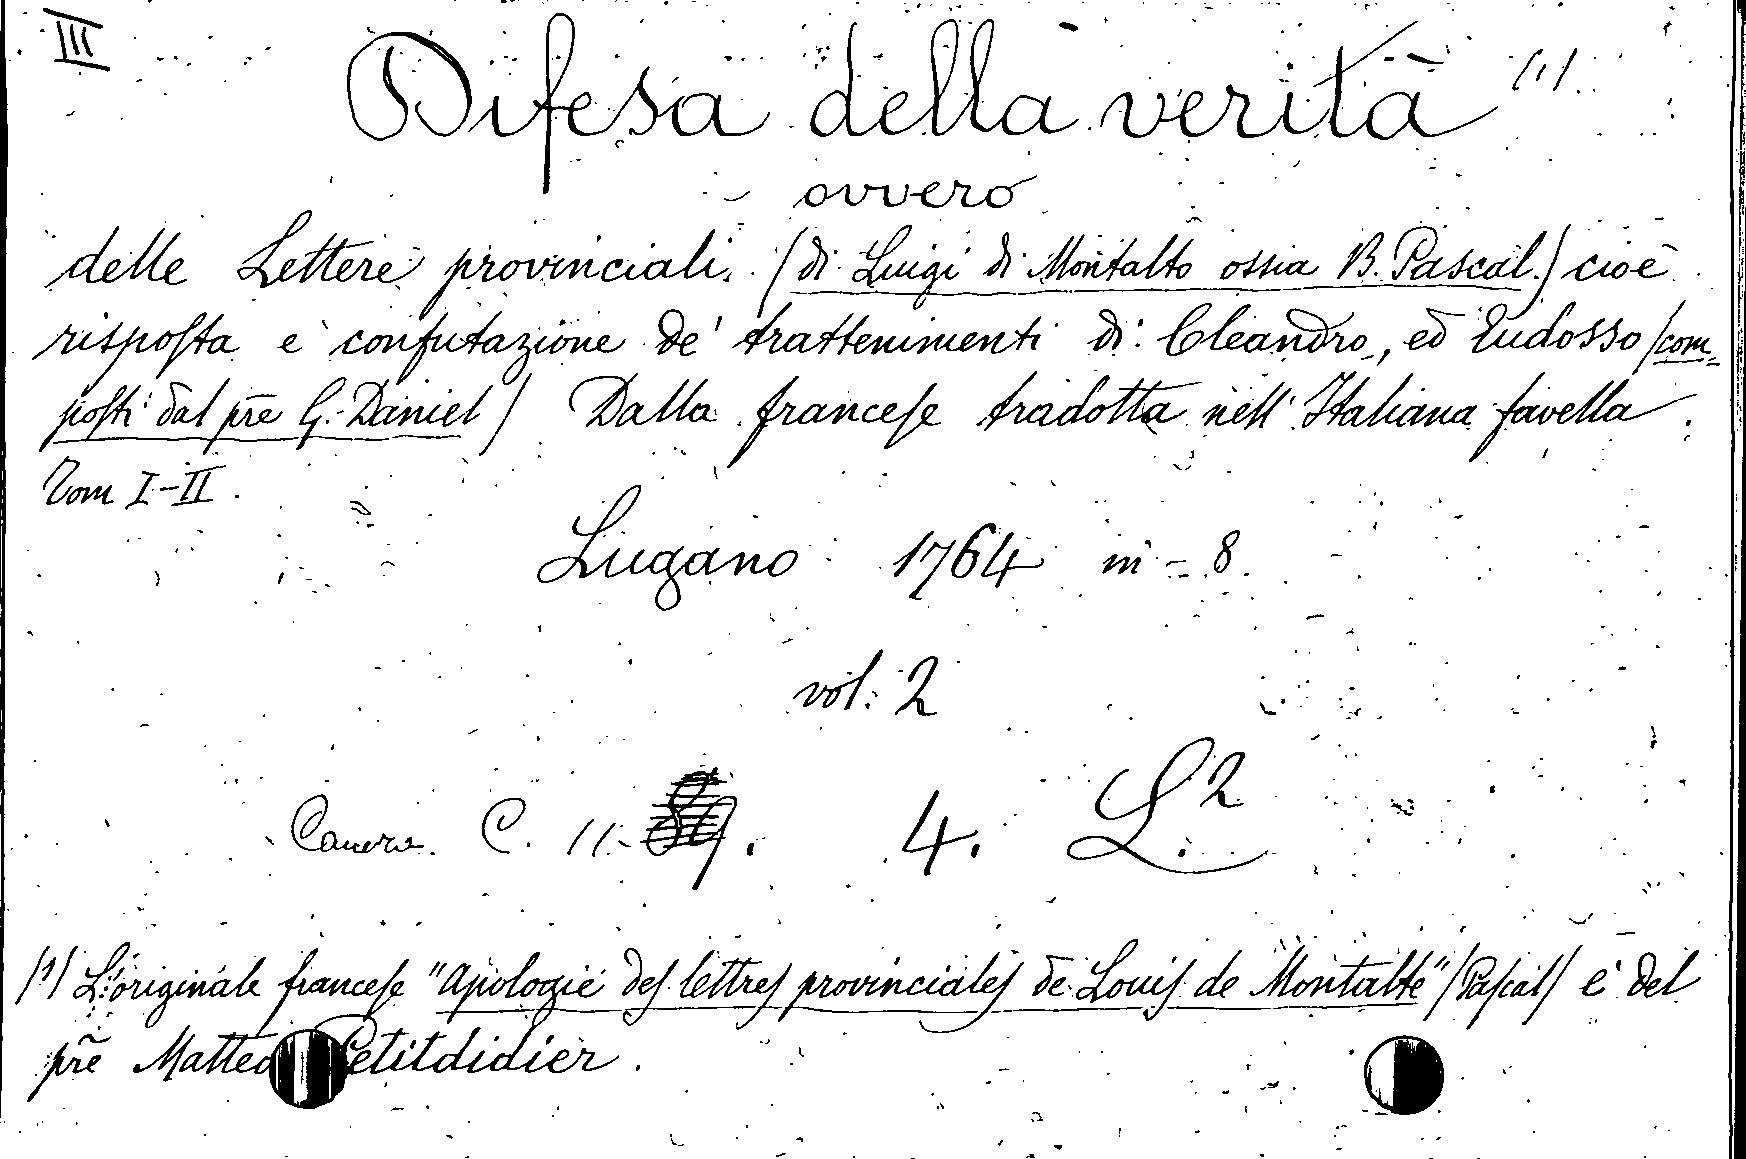 III
Difesa della verità (1)
ovvero
delle Lettere provinciali. (di Luigi di Montalto ossia B. Pascal.) cioè
risposta e confutazione de' trattenimenti di Cleandro, ed Eudosso (com-
posti dal pre G. Daniel) Dalla francese tradotta nell' Italiana favella.
Tom I-II.
Lugano 1764 in-8.
vol. 2
Camera. C. 11. 4. L.2
(1) L'originale francese "Apologie des lettres provinciales de Louis de Montalte" (Pascal) è del
pre Matteo Petitdidier.